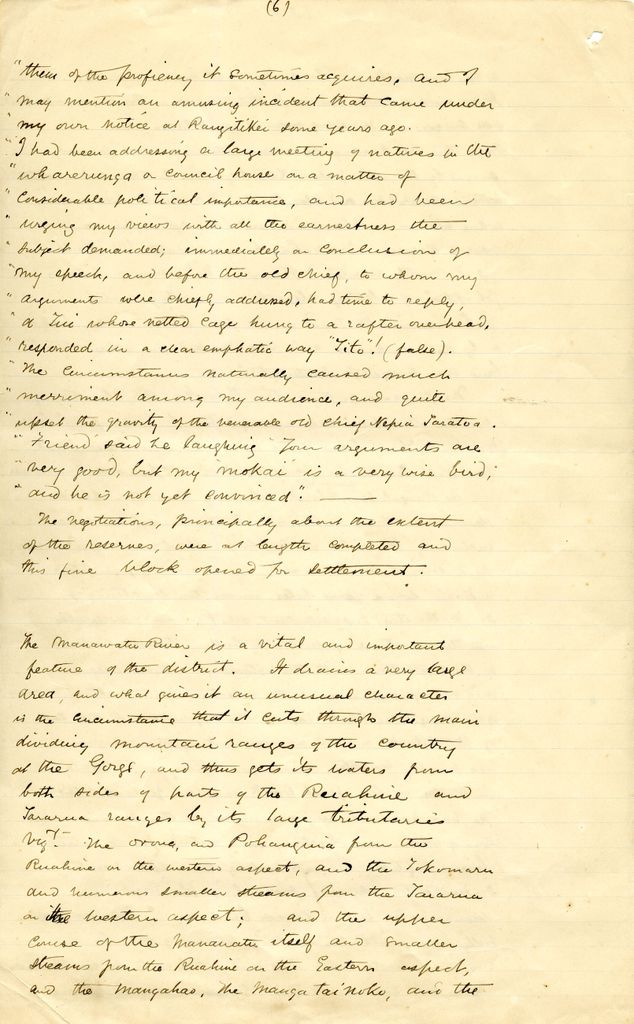 (6)
"them of the profiency it sometimes acquires. and I
"may mention an amusing incident that came under
"my own notice at Rangitikei some years ago.
"I had been addressing a large meeting of natives in the
"wharerunga or council house on a matter of
"considerable political importance, and had been
"urging my views with all the earnestness the
"subject demanded; immediately on conclusion of
"my speech, and before the old chief, to whom my
"arguments were chiefly addressed, had time to reply,
"a Tui whose netted cage hung to a rafter overhead,
"responded in a clear emphatic way "Tito"! (false).
"The circumstances naturally caused much
"merriment among my audience, and quite
"upset the gravity of the venerable old chief Nepia Taratoa.
"Friend" said he laughing "Your arguments are
"very good, but my mokai is a very wise bird,
"and he is not yet convinced". —
The negotiations, principally about the extent
of the reserves, were at length completed and
this fine block opened for settlement.
The Manawatu River is a vital and important
feature of the district. It drains a very large
area, and what gives it an unusual character
is the circumstance that it cuts through the main
dividing mountain ranges of the country
at the Gorge, and thus gets its waters from
both sides of parts of the Ruahine and
Tararua ranges by its large tributaries
vizt. The Oroua, and Pohangina from the
Ruahine on the western aspect, and the Tokomaru
and numerous smaller streams from the Tararua
on the western aspect; and the upper
course of the Manawatu itself and smaller
streams from the Ruahine on the Eastern aspect,
and the Mangahao, the Manga tai noko, and the